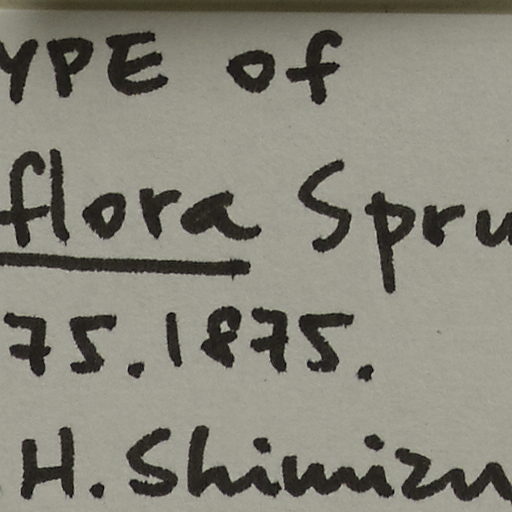 YPE of
flora Spru
75.1875.
. H. Shimizu